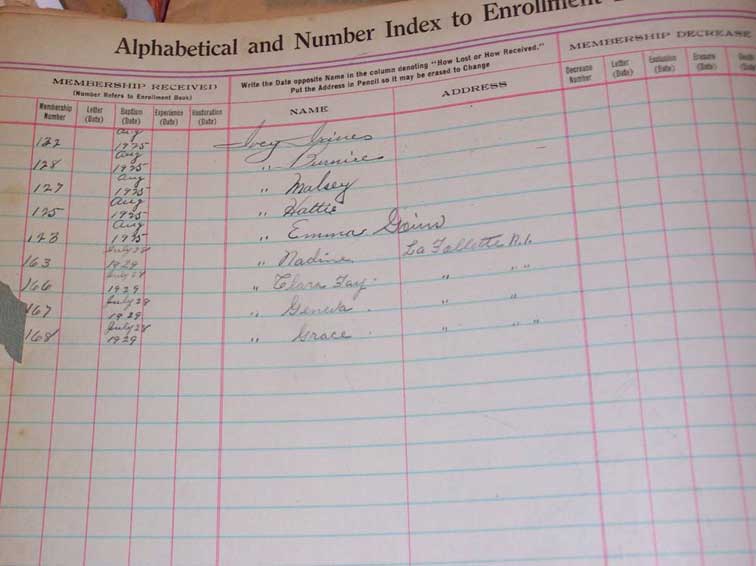 Alphabetical and Number Index to Enrollment
MEMBERSHIP RECEIVED
(Number Refers to Enrollment Book)
Write the Date opposite Name in the column denoting "How Lost or How Received."
Put the Address in Pencil so it may be erased to Change
MEMBERSHIP DECREASE
Membership Number Letter (Date) Baptism (Date) Experience (Date) Restoration (Date) NAME ADDRESS Decrease Number Letter (Date) Exclusion (Date) Erasure (Date) Death (Date)
122 Aug 1925 Ivey
128 Aug 1925 " Burnice
127 Aug 1925 " Malsey
125 Aug 1925 " Hattie
123 Aug 1925 " Emma Goins
163 July 28 1929 " Nadine La Follette R.1.
166 July 28 1929 " Clara Fay " " "
167 July 28 1929 " Geneva " "
168 July 28 1929 " Grace " " "